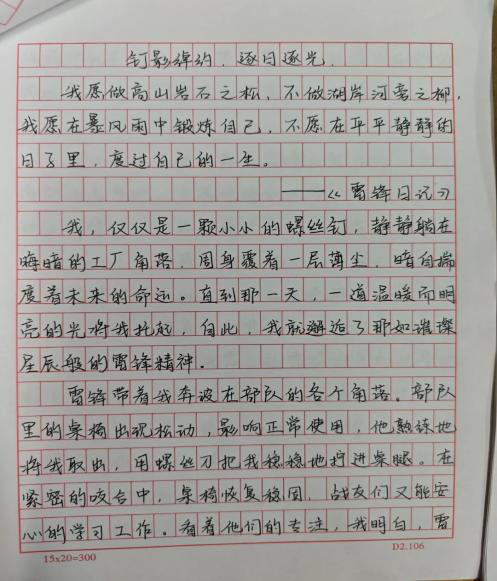 钉影绰约，逐日逐光.
我愿做高山岩石之松，不做湖岸河旁之柳，
我愿在暴风雨中锻炼自己，不愿在平平静静的
日子里，度过自己的一生。
——《雷锋日记》
我，仅仅是一颗小小的螺丝钉，静静躺在
晦暗的工厂角落，周身覆着一层薄尘，暗自揣
度着未来的命运。直到那一天，一道温暖而明
亮的光将我托起，自此，我就邂逅了那如璀璨
星辰般的雷锋精神.
雷锋带着我奔波在部队的各个角落。部队
里的桌椅出现松动，影响正常使用，他熟练地
将我取出，用螺丝刀把我稳稳地拧进桌腿。在
紧密的咬合中，桌椅恢复稳固，战友们又能安
心的学习工作。看着他们的专注，我明白，雷
15x20=300
D2.106